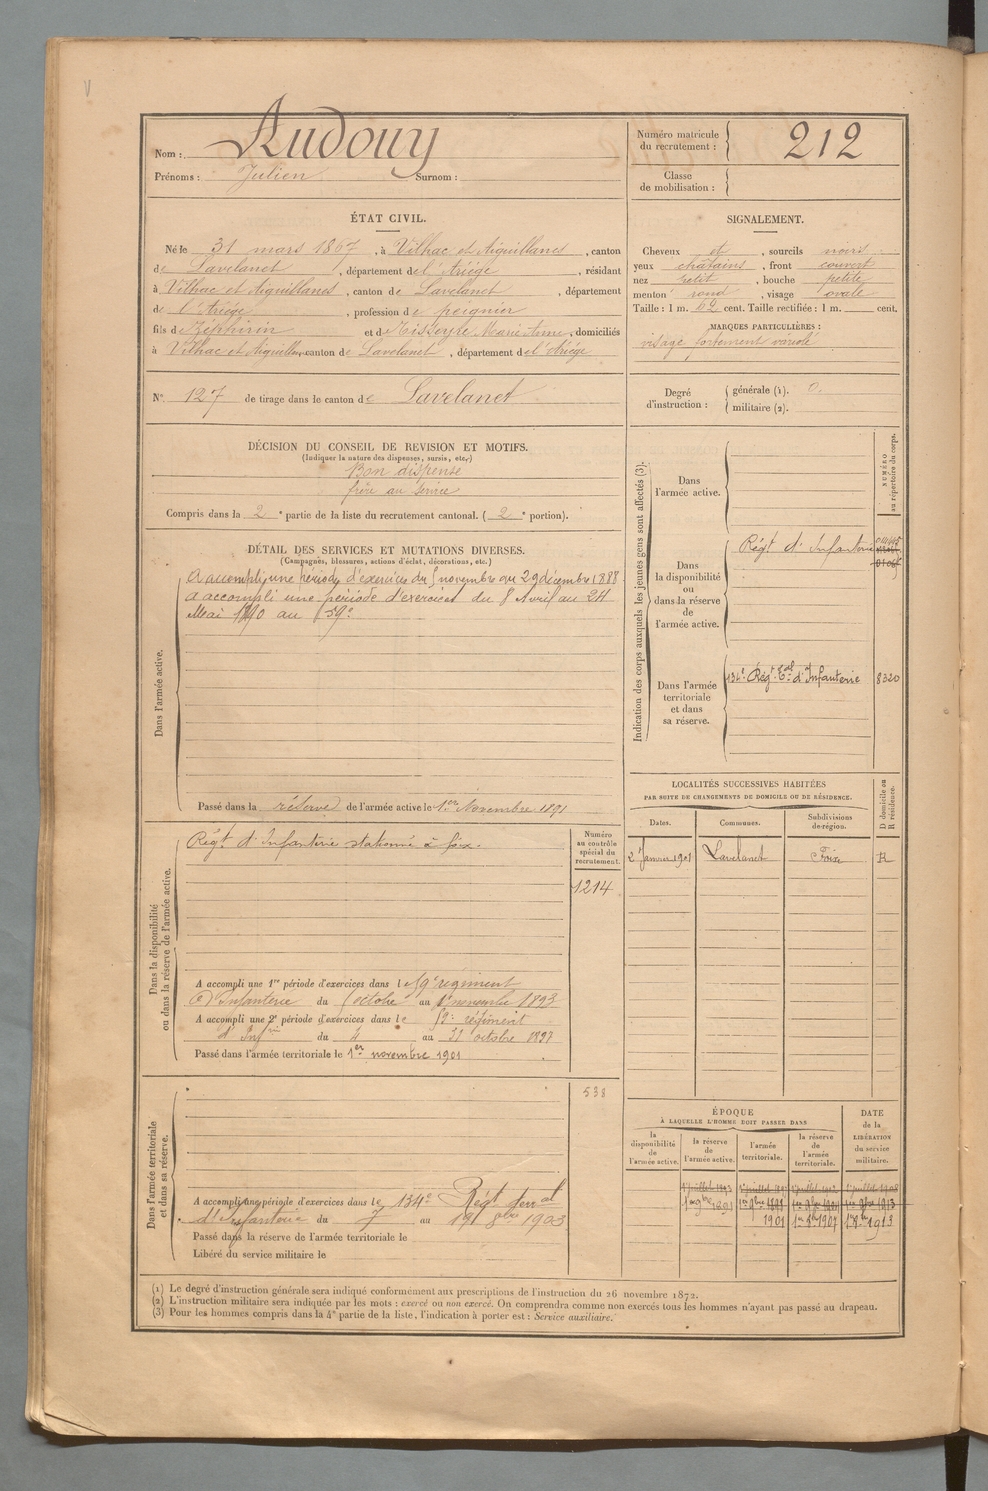 Nom : Audouy
Prénoms : Julien Surnom :
Numéro matricule du recrutement : 212
Classe de mobilisation :
ÉTAT CIVIL.
Né le 31 mars 1867, à Vilhac et Aiguillanes, canton
de Lavelanet, département de l'Ariège, résidant
à Vilhac et Aiguillanes, canton de Lavelanet, département
de l'Ariège, profession de peignier
fils de Zéphirin et de Tisseyre Marie Anne, domiciliés
à Vilhac et Aiguillan, canton de Lavelanet, département de l'Ariège
SIGNALEMENT.
Cheveux et, sourcils noirs
yeux châtains, front couvert
nez petit, bouche petite
menton rond, visage ovale
Taille : 1 m. 62 cent. Taille rectifiée : 1 m. cent.
MARQUES PARTICULIÈRES :
visage fortement variolé
N° 127 de tirage dans le canton de Lavelanet
Degré d'instruction : générale (1). 0.
militaire (2).
DÉCISION DU CONSEIL DE REVISION ET MOTIFS.
(Indiquer la nature des dispenses, sursis, etc.)
Bon dispensé
frère au service
Compris dans la 2e partie de la liste du recrutement cantonal. (2e portion).
DÉTAIL DES SERVICES ET MUTATIONS DIVERSES.
(Campagnes, blessures, actions d'éclat, décorations, etc.)
Dans l'armée active.
A accompli une période d'exercices du 5 novembre au 29 décembre 1888
A accompli une période d'exercices du 8 Avril au 24
Mai 1890 au 59e
Passé dans la réserve de l'armée active le 1er Novembre 1891
Indication des corps auxquels les jeunes gens sont affectés (3).
NUMÉRO au répertoire du corps.
Dans l'armée active.
Dans la disponibilité ou dans la réserve de l'armée active.
Régt d'Infanterie
Dans l'armée territoriale et dans sa réserve.
134e Régt Tal d'Infanterie 8320
LOCALITÉS SUCCESSIVES HABITÉES
PAR SUITE DE CHANGEMENTS DE DOMICILE OU DE RÉSIDENCE.
Dates. Communes. Subdivisions de région. D domicile ou R résidence.
2 Janvier 1901 Lavelanet Foix R
Dans la disponibilité ou dans la réserve de l'armée active.
Régt d'Infanterie stationné à Foix.
Numéro au contrôle spécial du recrutement.
1214
A accompli une 1re période d'exercices dans le 59e régiment
d'Infanterie du octobre au 1er novembre 1893
A accompli une 2e période d'exercices dans le 59e régiment
d'Infrie du 4 au 31 octobre 1897
Passé dans l'armée territoriale le 1er novembre 1901
Dans l'armée territoriale et dans sa réserve.
538
A accompli une période d'exercices dans le 134e Régt terral
d'Infanterie du 7 au 19 8bre 1903
Passé dans la réserve de l'armée territoriale le
Libéré du service militaire le
ÉPOQUE
À LAQUELLE L'HOMME DOIT PASSER DANS
la disponibilité de l'armée active.
la réserve de l'armée active.
l'armée territoriale.
la réserve de l'armée territoriale.
DATE de la LIBÉRATION du service militaire.
1er 9bre 1891
1901 1907 1913
(1) Le degré d'instruction générale sera indiqué conformément aux prescriptions de l'instruction du 26 novembre 1872.
(2) L'instruction militaire sera indiquée par les mots : exercé ou non exercé. On comprendra comme non exercés tous les hommes n'ayant pas passé au drapeau.
(3) Pour les hommes compris dans la 4e partie de la liste, l'indication à porter est : Service auxiliaire.